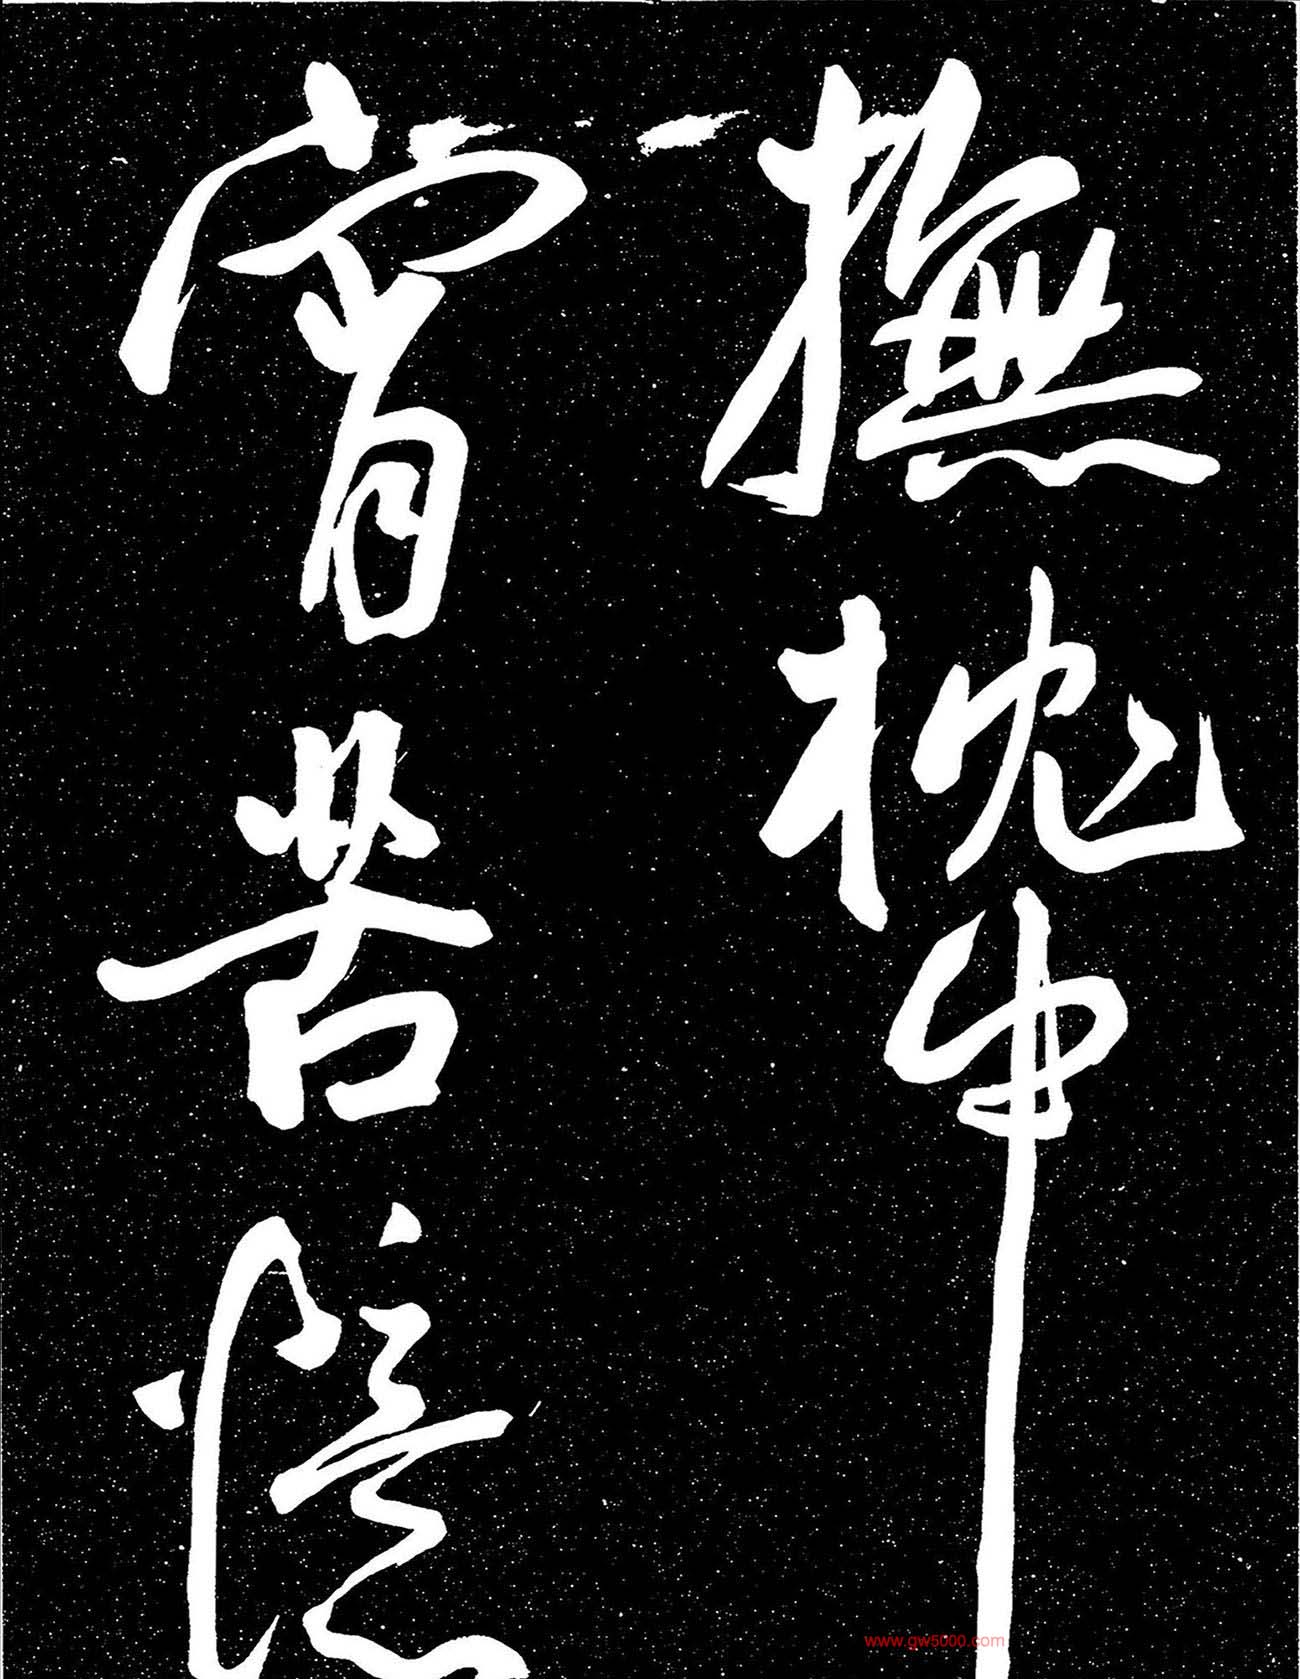 撫枕中
宵苦憶
www.gw5000.com